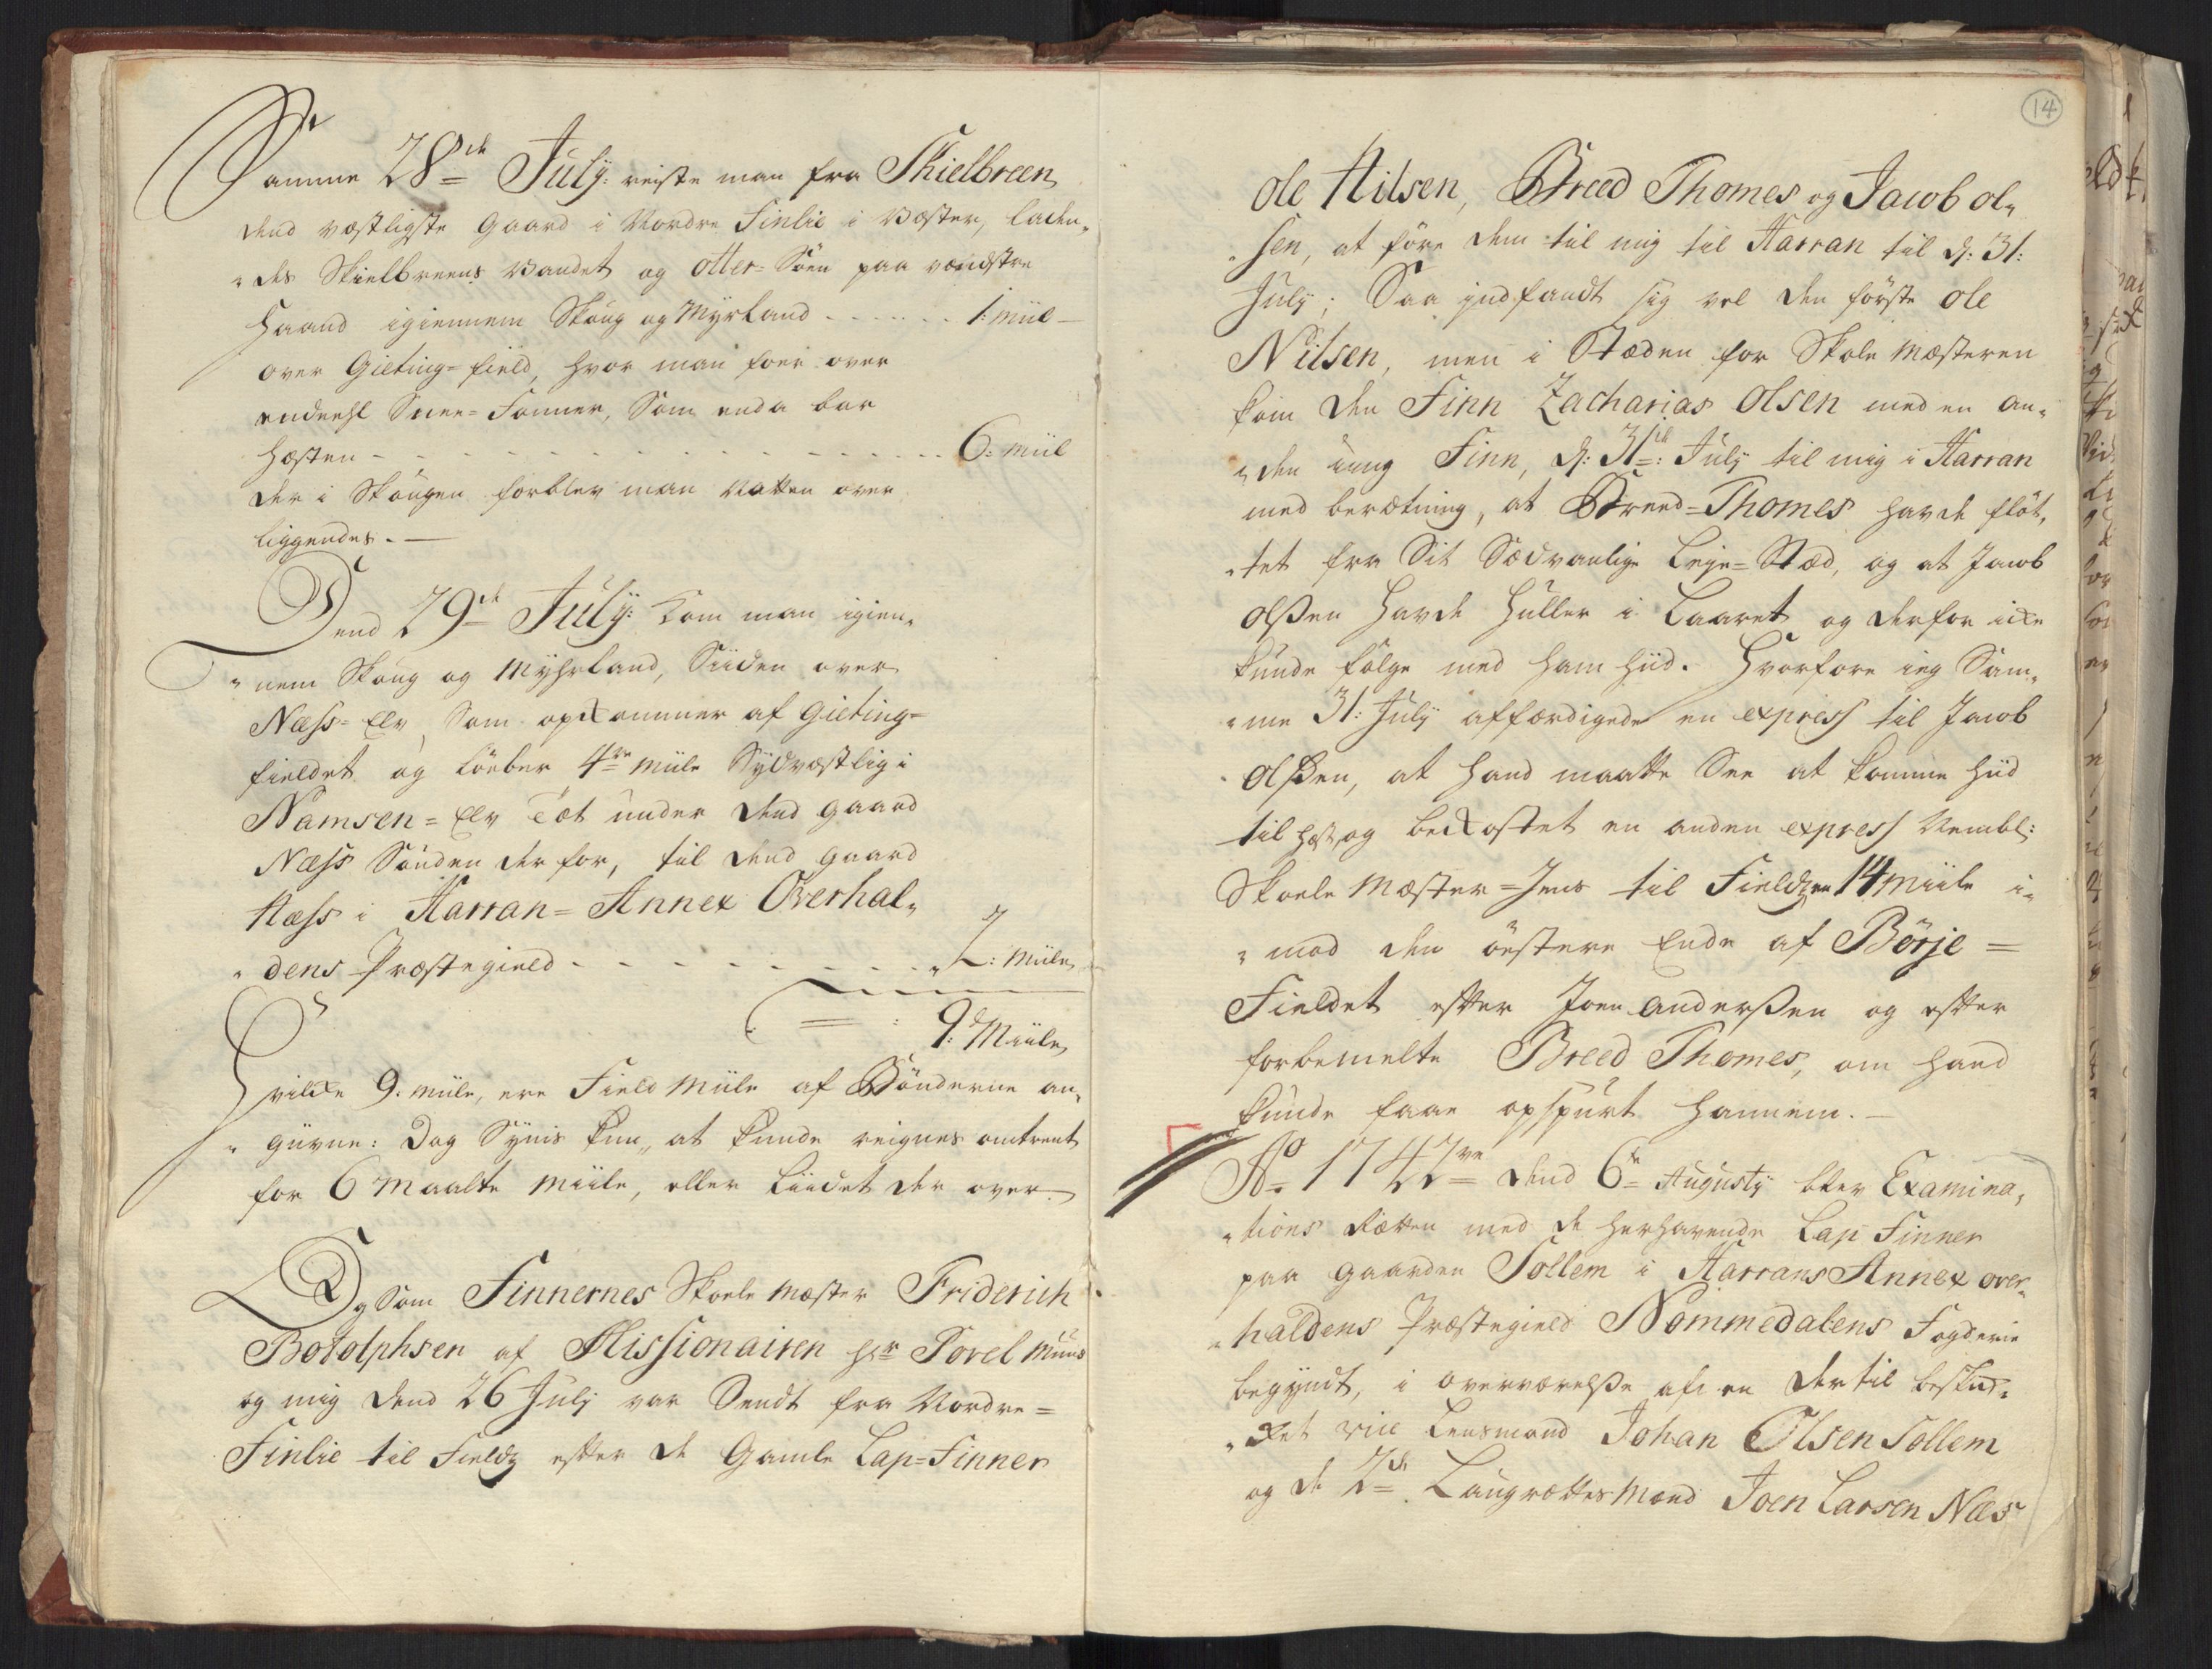 Samme 28de July: reiste man fra Skielbreen
dend væstligste Gaard i Nordre Finlie i Væster, laden„
„des Skielbreens Vandet og Otter=Söen paa venstre
Haand igiennem Skoug og Myrland - - - - - - - 1: miil
over Gieting=Field, hvor man foer over
endeehl Snee=Fonner, Som enda bar
Hæsten - - - - - - - - - - - - 6: miil
der i Skougen forblev man Natten over
liggendes. —
Dend 29de July: Kom man igien„
„nem Skoug og Myhrland, Siiden over
Næss=Elv, Som opkommer af Gieting=
Fieldet og löeber 4re miile Sydvæstlig i
Namsen=Elv tæt under dend gaard
Næss Sönden derfor, til dend gaard
Næss i Harran=Annex Overhal„
„dens Præstegield - - - - - - - „2: miile
= : 9: Miile
Hvilke 9: miile, ere Field Miile af Bönderne an„
„givne: Dog Synis kun, at kunde reignes omtrent
for 6 Maalte Miile, eller liidet der over. —
Og som Finnernes Skoele Mæster Friderich
Botolphsen af Missionairen Hr Povel Muus
og mig dend 26 July var Sendt fra Nordre=
Finlie til Fields efter de Gamle Lap=Finner
14
Ole Nilsen, Breed Thomes og Jacob Ol„
„sen, at före dem til mig til Harran til d: 31:
July; Saa indfandt sig vel den förste Ole
Nilsen, men i Stæden for Skole Mæsteren
kom den Finn Zacharias Olsen med en an„
„den ung Finn, d: 31te: July til mig i Harran
med beretning, at Breed=Thomes havde flöt„
„tet fra Sit Sædvanlige Leye=Stæd, og at Jacob
Olßen havde Huller i Laaret og derfor icke
kunde fölge med ham hiid. Hvorfore ieg Sam„
„me 31: July affærdigede en express til Jacob
Olßen, at hand maatte See at komme hiid
til hest, og bekostet en anden express Nembl:
Skoele Mæster=Jens til Fields 14 Miile i„
„mod den östere Ende af Börje=
Fieldet efter Joen Anderßen og efter
forbemelte Breed Thomes, om hand
kunde faae opspurt hannem. —
Ao 1742re dend 6te Augusty blev Examina„
„tions Rætten med de herhavende Lap Finner
paa gaarden Sollem i Harrans Annex Over„
„haldens Præstegield Nommedalens Fogderie
begyndt, i overværelße af en dertil beskik„
„ket Lensmand Johan Olsen Sollem
og de 2de Laugrettes Mænd Joen Larsen Næs